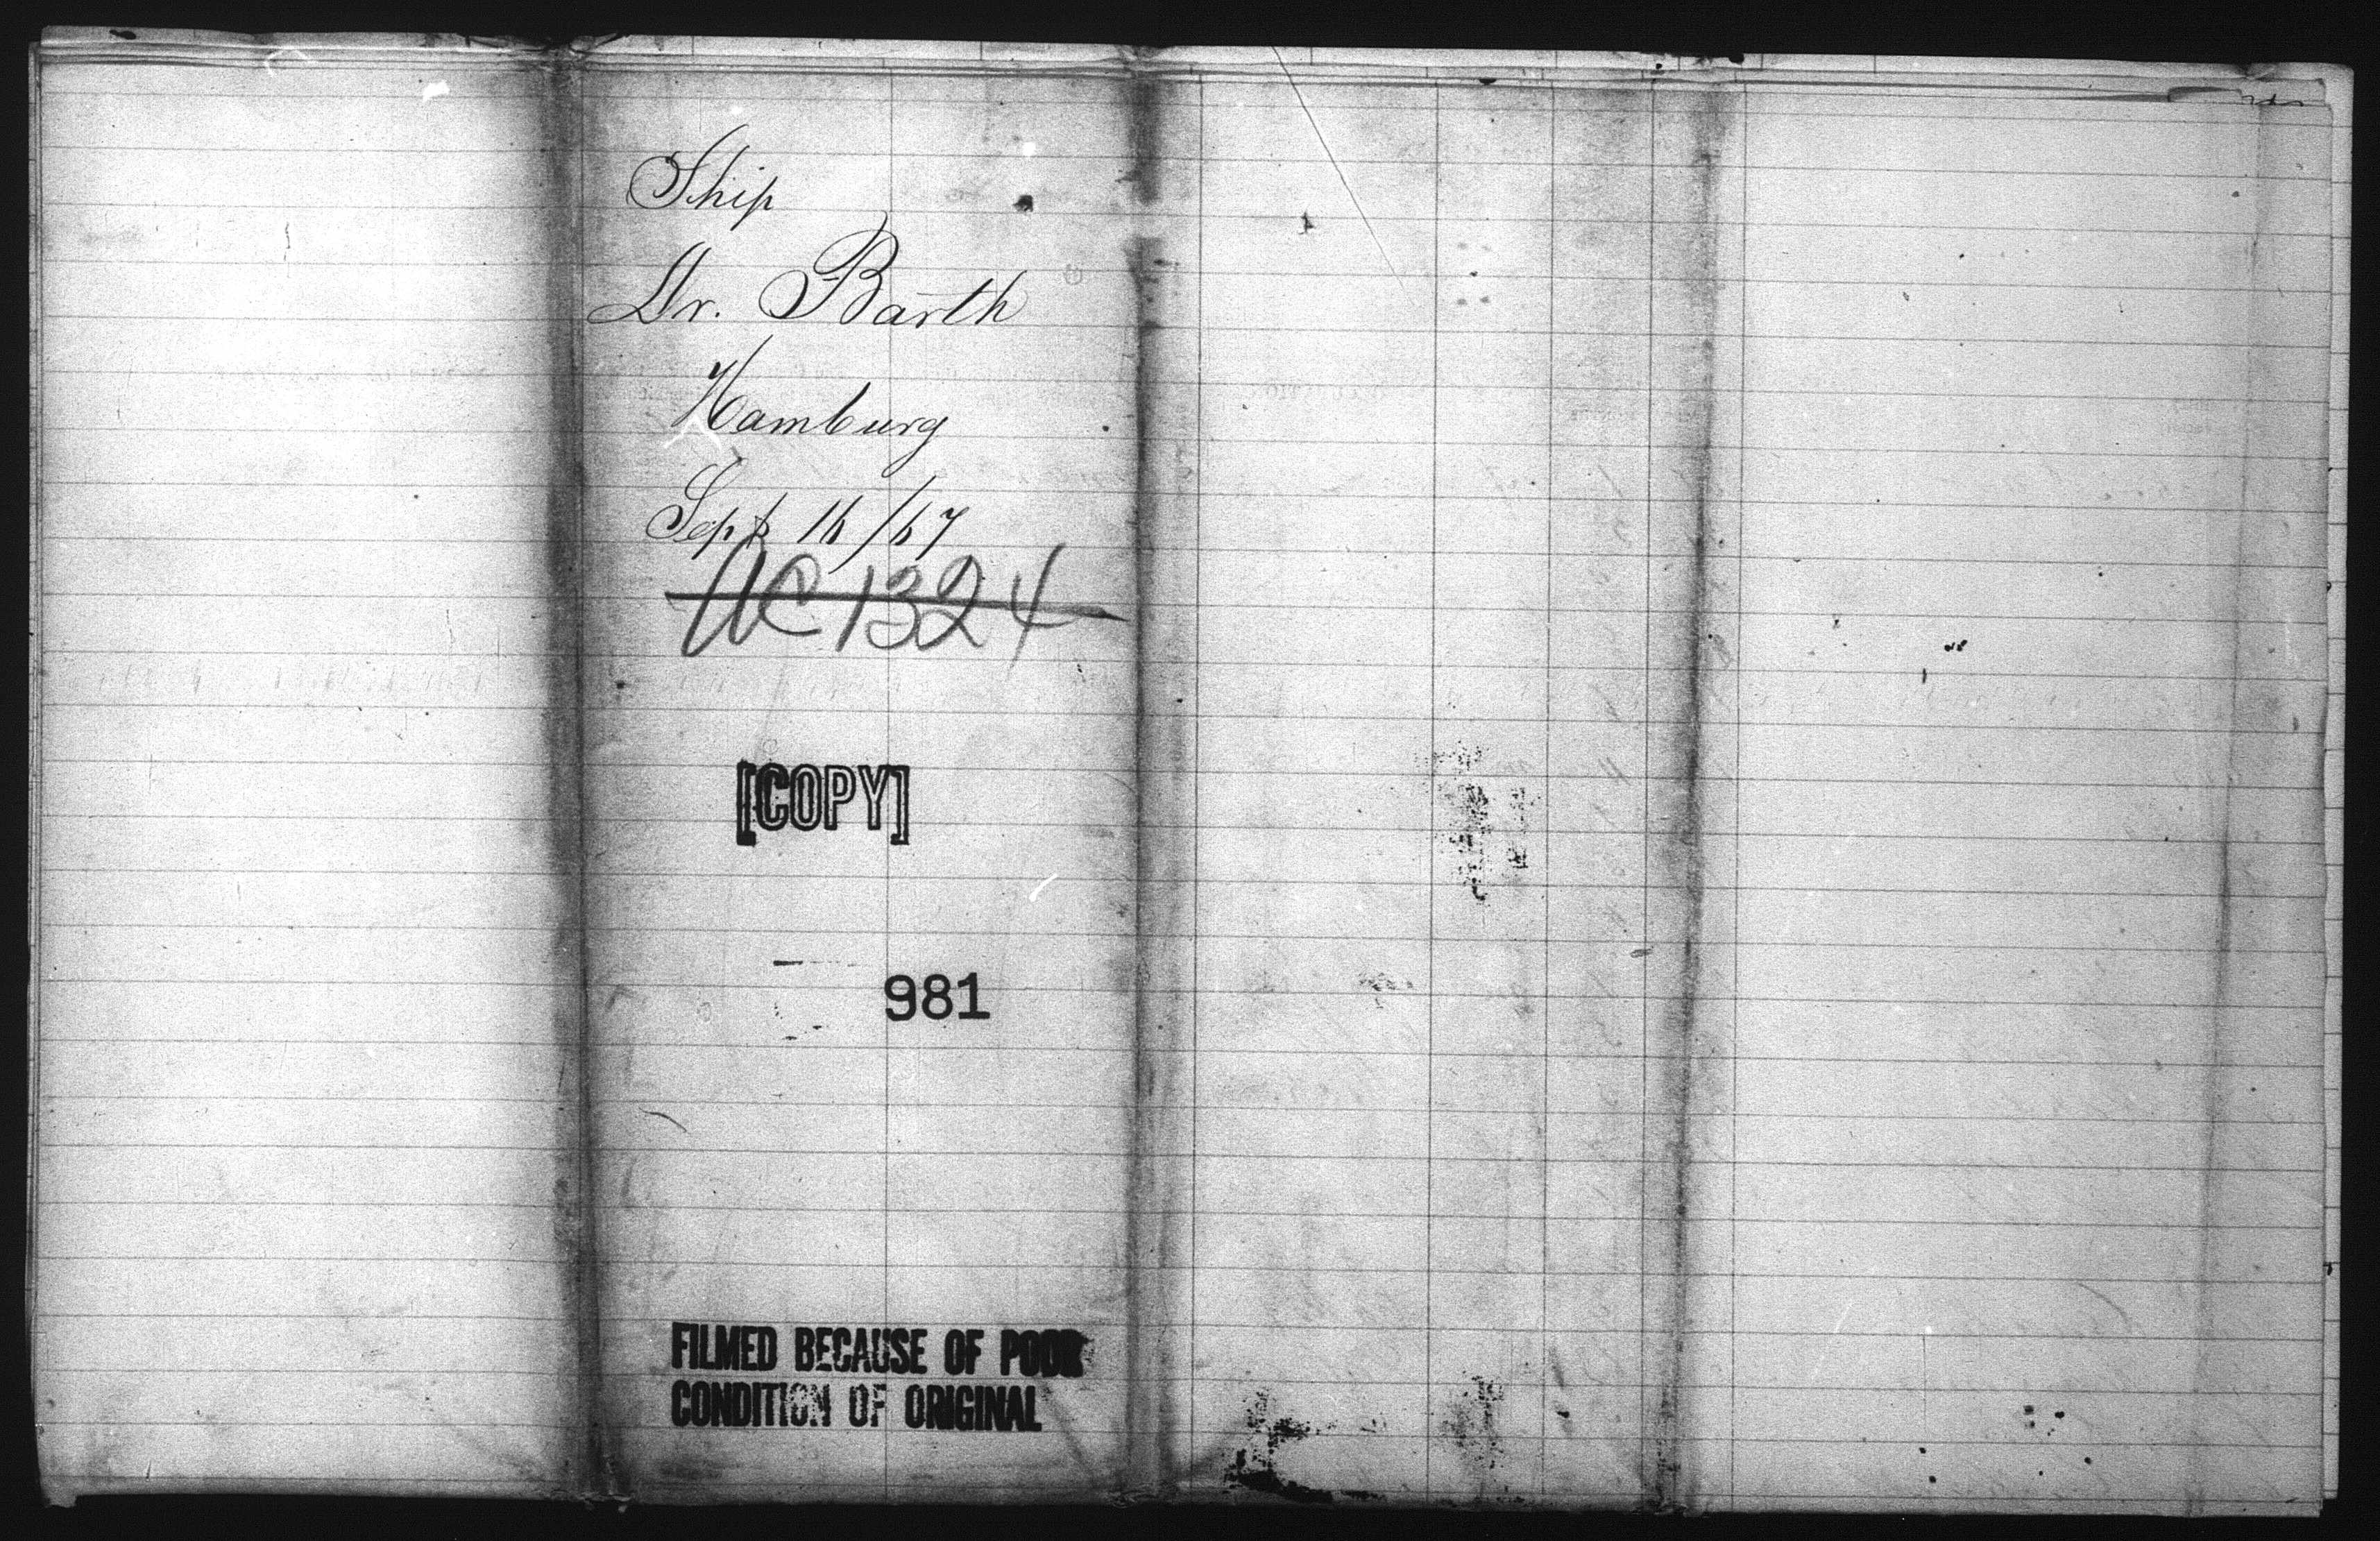 Ship
Dr. Barth
Hamburg
Sept 16/67
AC 1324
[COPY]
981
FILMED BECAUSE OF POOR
CONDITION OF ORIGINAL